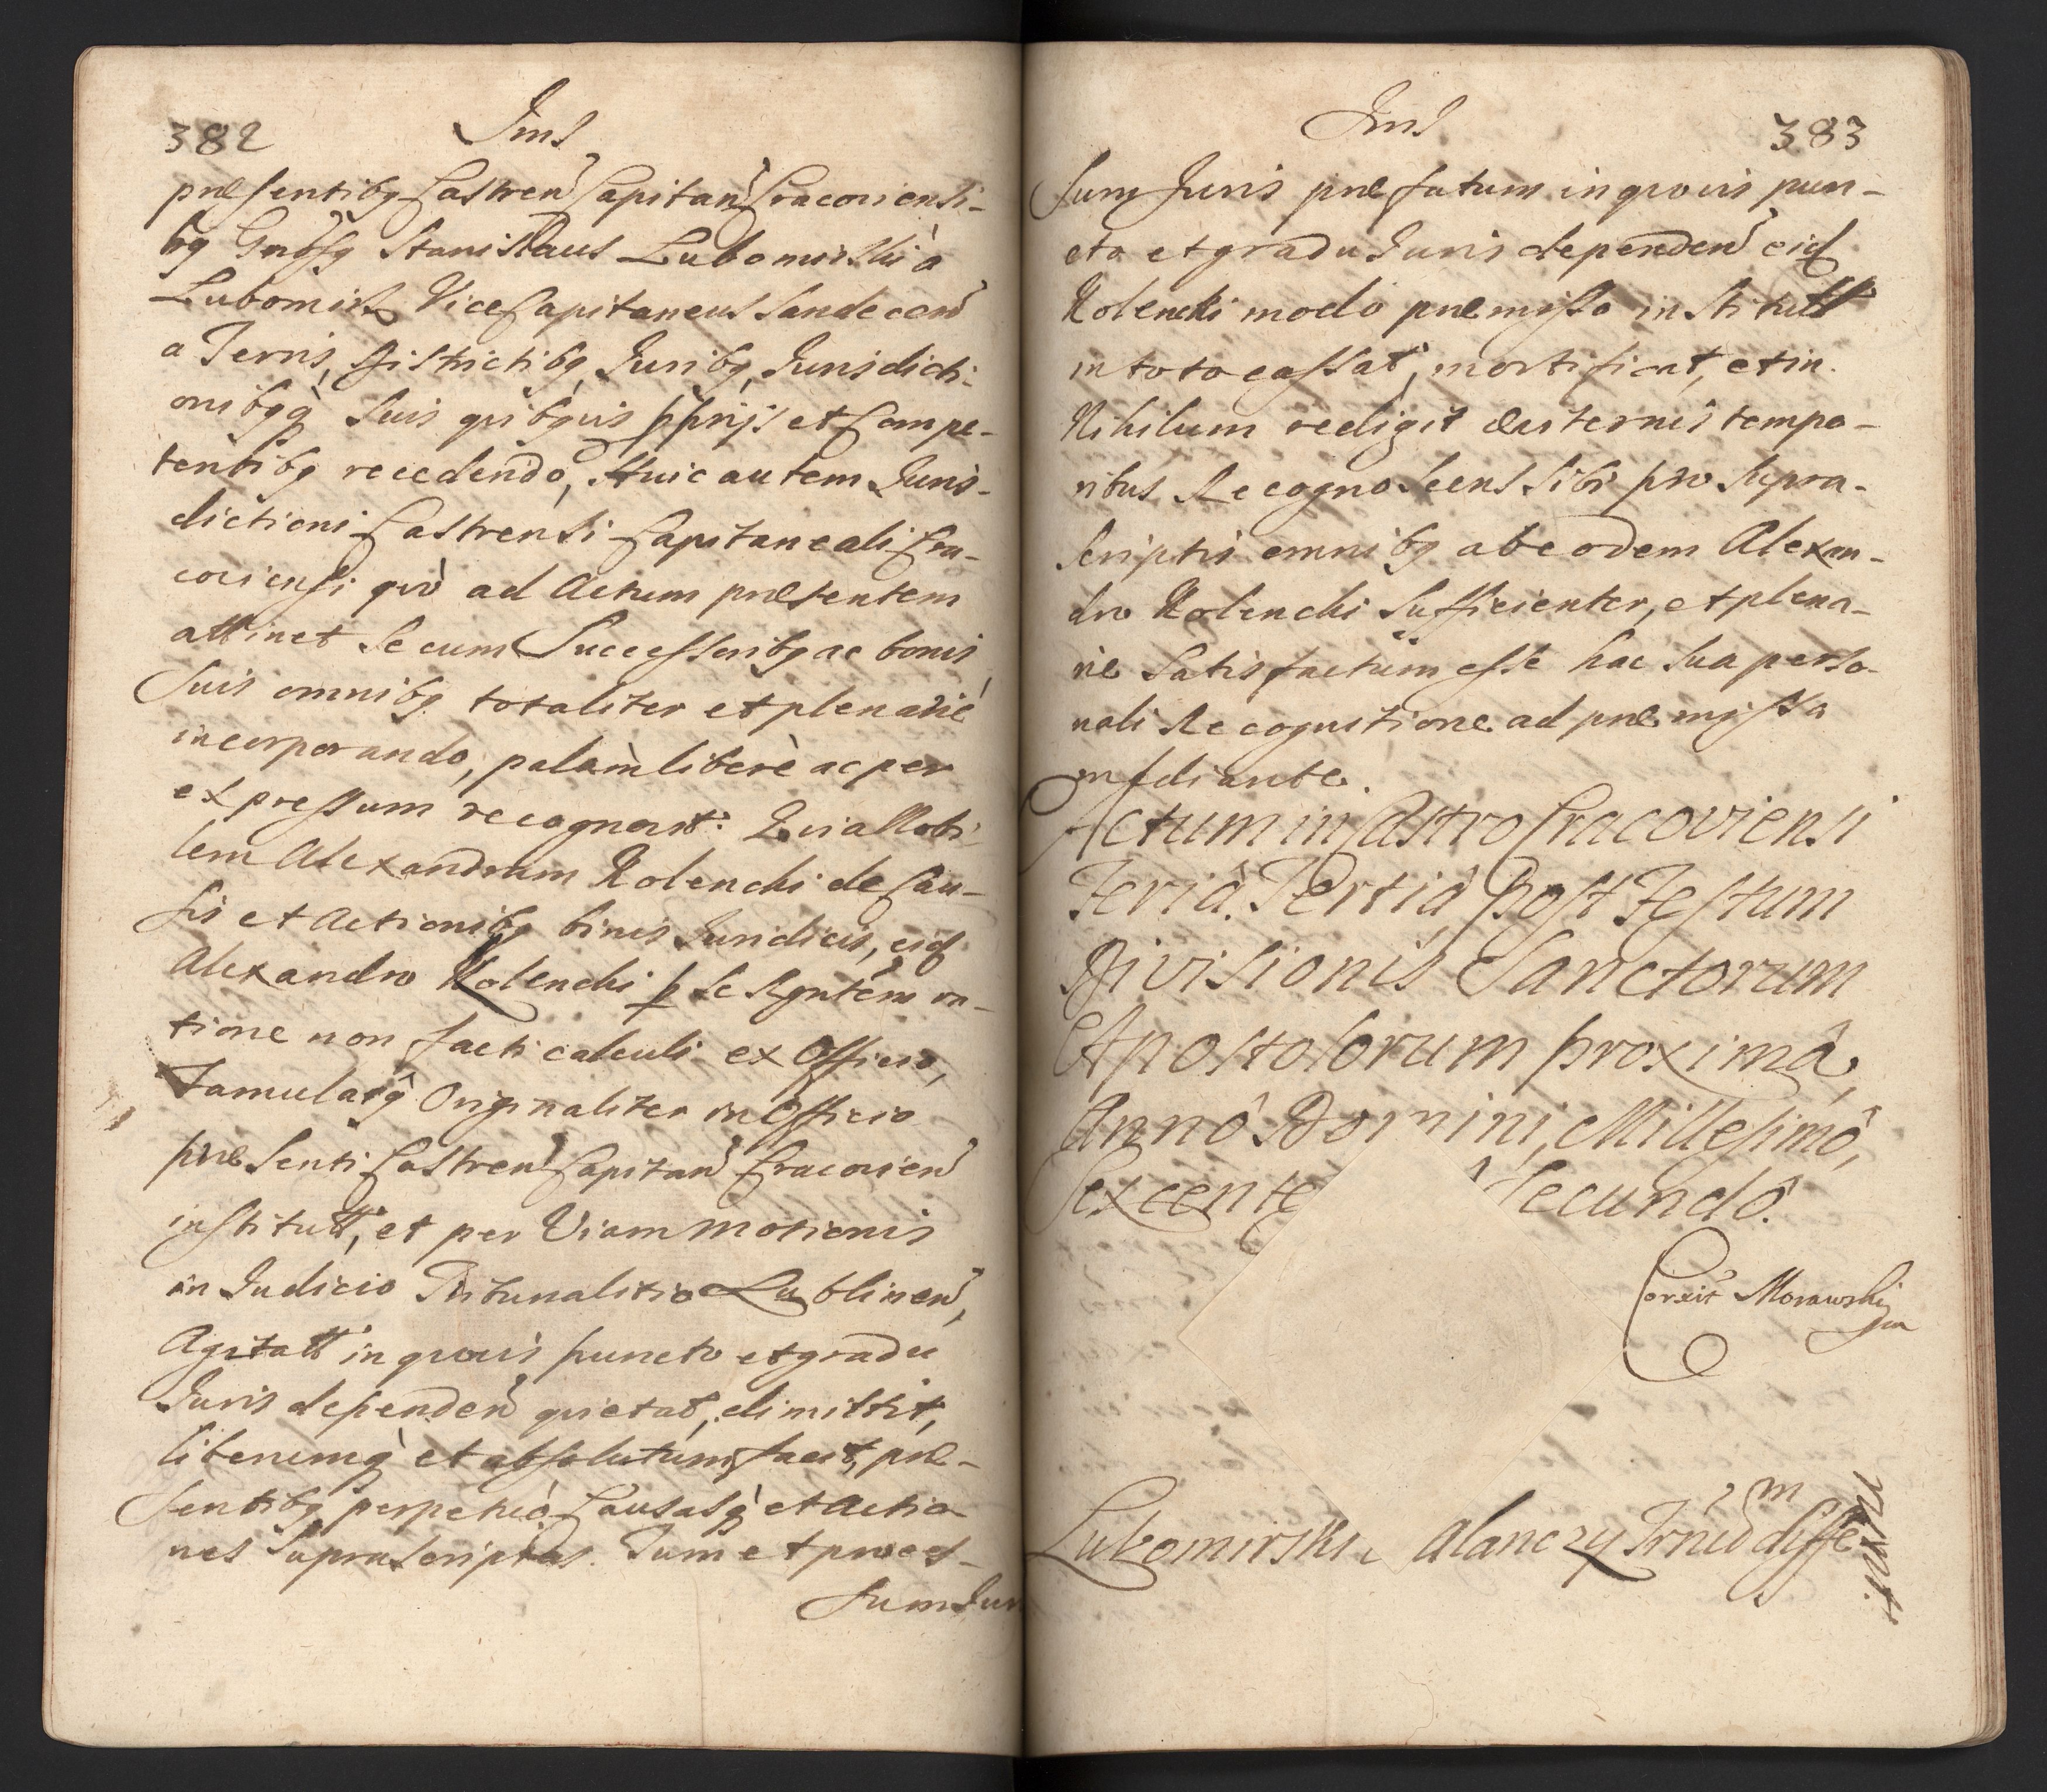 382 Ims
præsentibq Castren Capitan Cracoviensi-
bq Gnosq Stanislaus Lubomirski à
Lubomirz ViceCapitaneus Sandecen
a Terris, Districtibq, Juribq, Jurisdicti-
onibqq suis quibquis pprijs et Compe-
tentibq recedendo, Huic autem Juris-
dictioni Castrensi Capitaneali Cra-
coviensi quò ad Actum præsentem
attinet se cum Successoribq ac bonis
Suis omnibq totaliter et plenarié
incorporando, palàm liberè ac per
expressum recognovit: Quia Nobi-
lem Alexandrum Kolencki de Cau-
sis et Actionibq binis Juridicis, eid
Alexandro Kolencki p se Rgntem ra-
tione non facti calculi ex Officio,
Famulatq Originaliter in Officio
præsenti Castren Capitan Cracovien
institutt, et per Viam motionis
in Judicio Tribunalitio Lublinen,
Agitatt in quovis puncto et gradu
Juris dependen quietat, dimittit,
liberumq et absolutum facit, præ-
sentibq perpetuò Causasq et Actio-
nes Suprascriptas. Tum et proces-
sum Jur
Ims 383
sum Juris præfatum in quovis pun-
cto et gradu Juris dependen eid
Kolencki modo præmisso institutt
in toto cassat, mortificat, et in
Nihilum redigit æviternis tempo-
ribus Recognoscens sibi pro supra-
scriptis omnibq ab eodem Alexan-
dro Kolencki sufficienter, et plena-
rie Satisfactum esse hac sua perso-
nali Recognitione ad præmissa
mediante.
Actum in Castro Cracoviensi
Feria Tertiâ Post Festum
Divisionis Sanctorum
Apostolorum proximâ,
Annô Domini, Millesimô,
Sexcente Secundô.
Correxit Morawski
Lubomirski Alanczy Trnid m disse